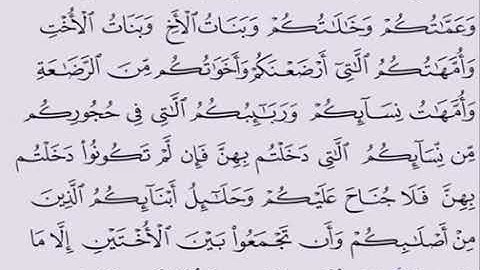 وَعَمَّٰتُكُمْ وَخَٰلَٰتُكُمْ وَبَنَاتُ ٱلْأَخِ وَبَنَاتُ ٱلْأُخْتِ
وَأُمَّهَٰتُكُمُ ٱلَّٰتِىٓ أَرْضَعْنَكُمْ وَأَخَوَٰتُكُم مِّنَ ٱلرَّضَٰعَةِ
وَأُمَّهَٰتُ نِسَآئِكُمْ وَرَبَٰٓئِبُكُمُ ٱلَّٰتِى فِى حُجُورِكُم
مِّن نِّسَآئِكُمُ ٱلَّٰتِى دَخَلْتُم بِهِنَّ فَإِن لَّمْ تَكُونُوا۟ دَخَلْتُم
بِهِنَّ فَلَا جُنَاحَ عَلَيْكُمْ وَحَلَٰٓئِلُ أَبْنَآئِكُمُ ٱلَّذِينَ
مِنْ أَصْلَٰبِكُمْ وَأَن تَجْمَعُوا۟ بَيْنَ ٱلْأُخْتَيْنِ إِلَّا مَا